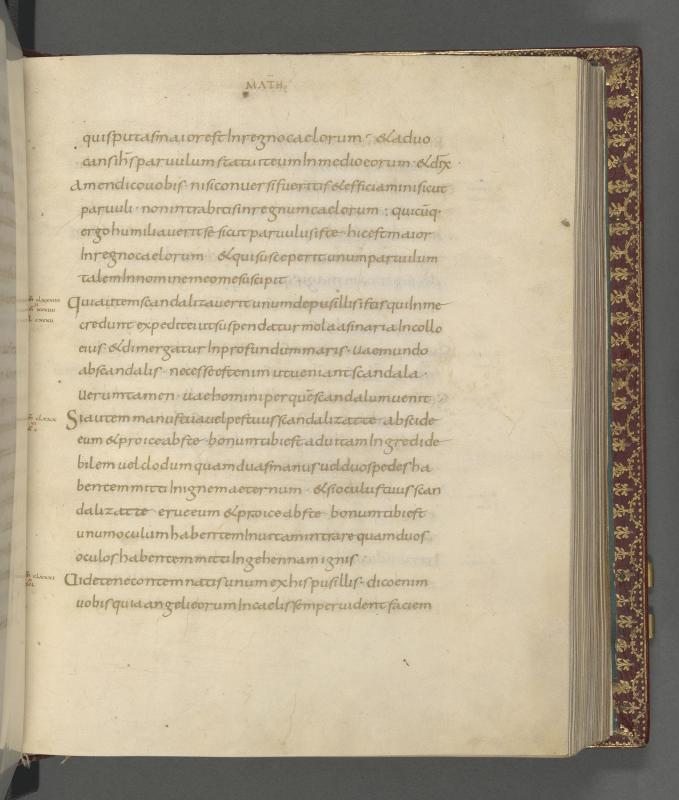 MATH
quis putas maior est In regno caelorum · & advo
cans ih̄s parvulum statuit eum In medio eorum · & dix̄ ·
Amen dico vobis · nisi conversi fueritis & efficiamini sicut
parvuli · non intrabitis in regnum caelorum : quicūq·
ergo humiliaverit se sicut parvulus iste · hic est maior
In regno caelorum & qui susceperit unum parvulum
talem In nomine meo me suscipit
Qui autem scandalizaverit unum de pusillis istis qui In me
credunt expedit ei ut suspendatur mola asinaria In collo
eius · & dimergatur In profundum maris · vae mundo
ab scandalis · necesse est enim ut veniant scandala ·
verumtamen · vae homini per quē scandalum venit
Si autem manus tua vel pes tuus scandalizat te · abscide
eum & proice abs te · bonum tibi est ad vitam Ingredi de
bilem vel clodum quam duas manus vel duos pedes ha
bentem mitti In ignem aeternum · & si oculus tuus scan
dalizat te erue eum & proice abs te · bonum tibi est
unum oculum habentem In vitam intrare quam duos
oculos habentem mitti In gehennam ignis
Videte ne contemnatis unum ex his pusillis · dico enim
vobis quia angeli eorum In caelis semper vident faciem